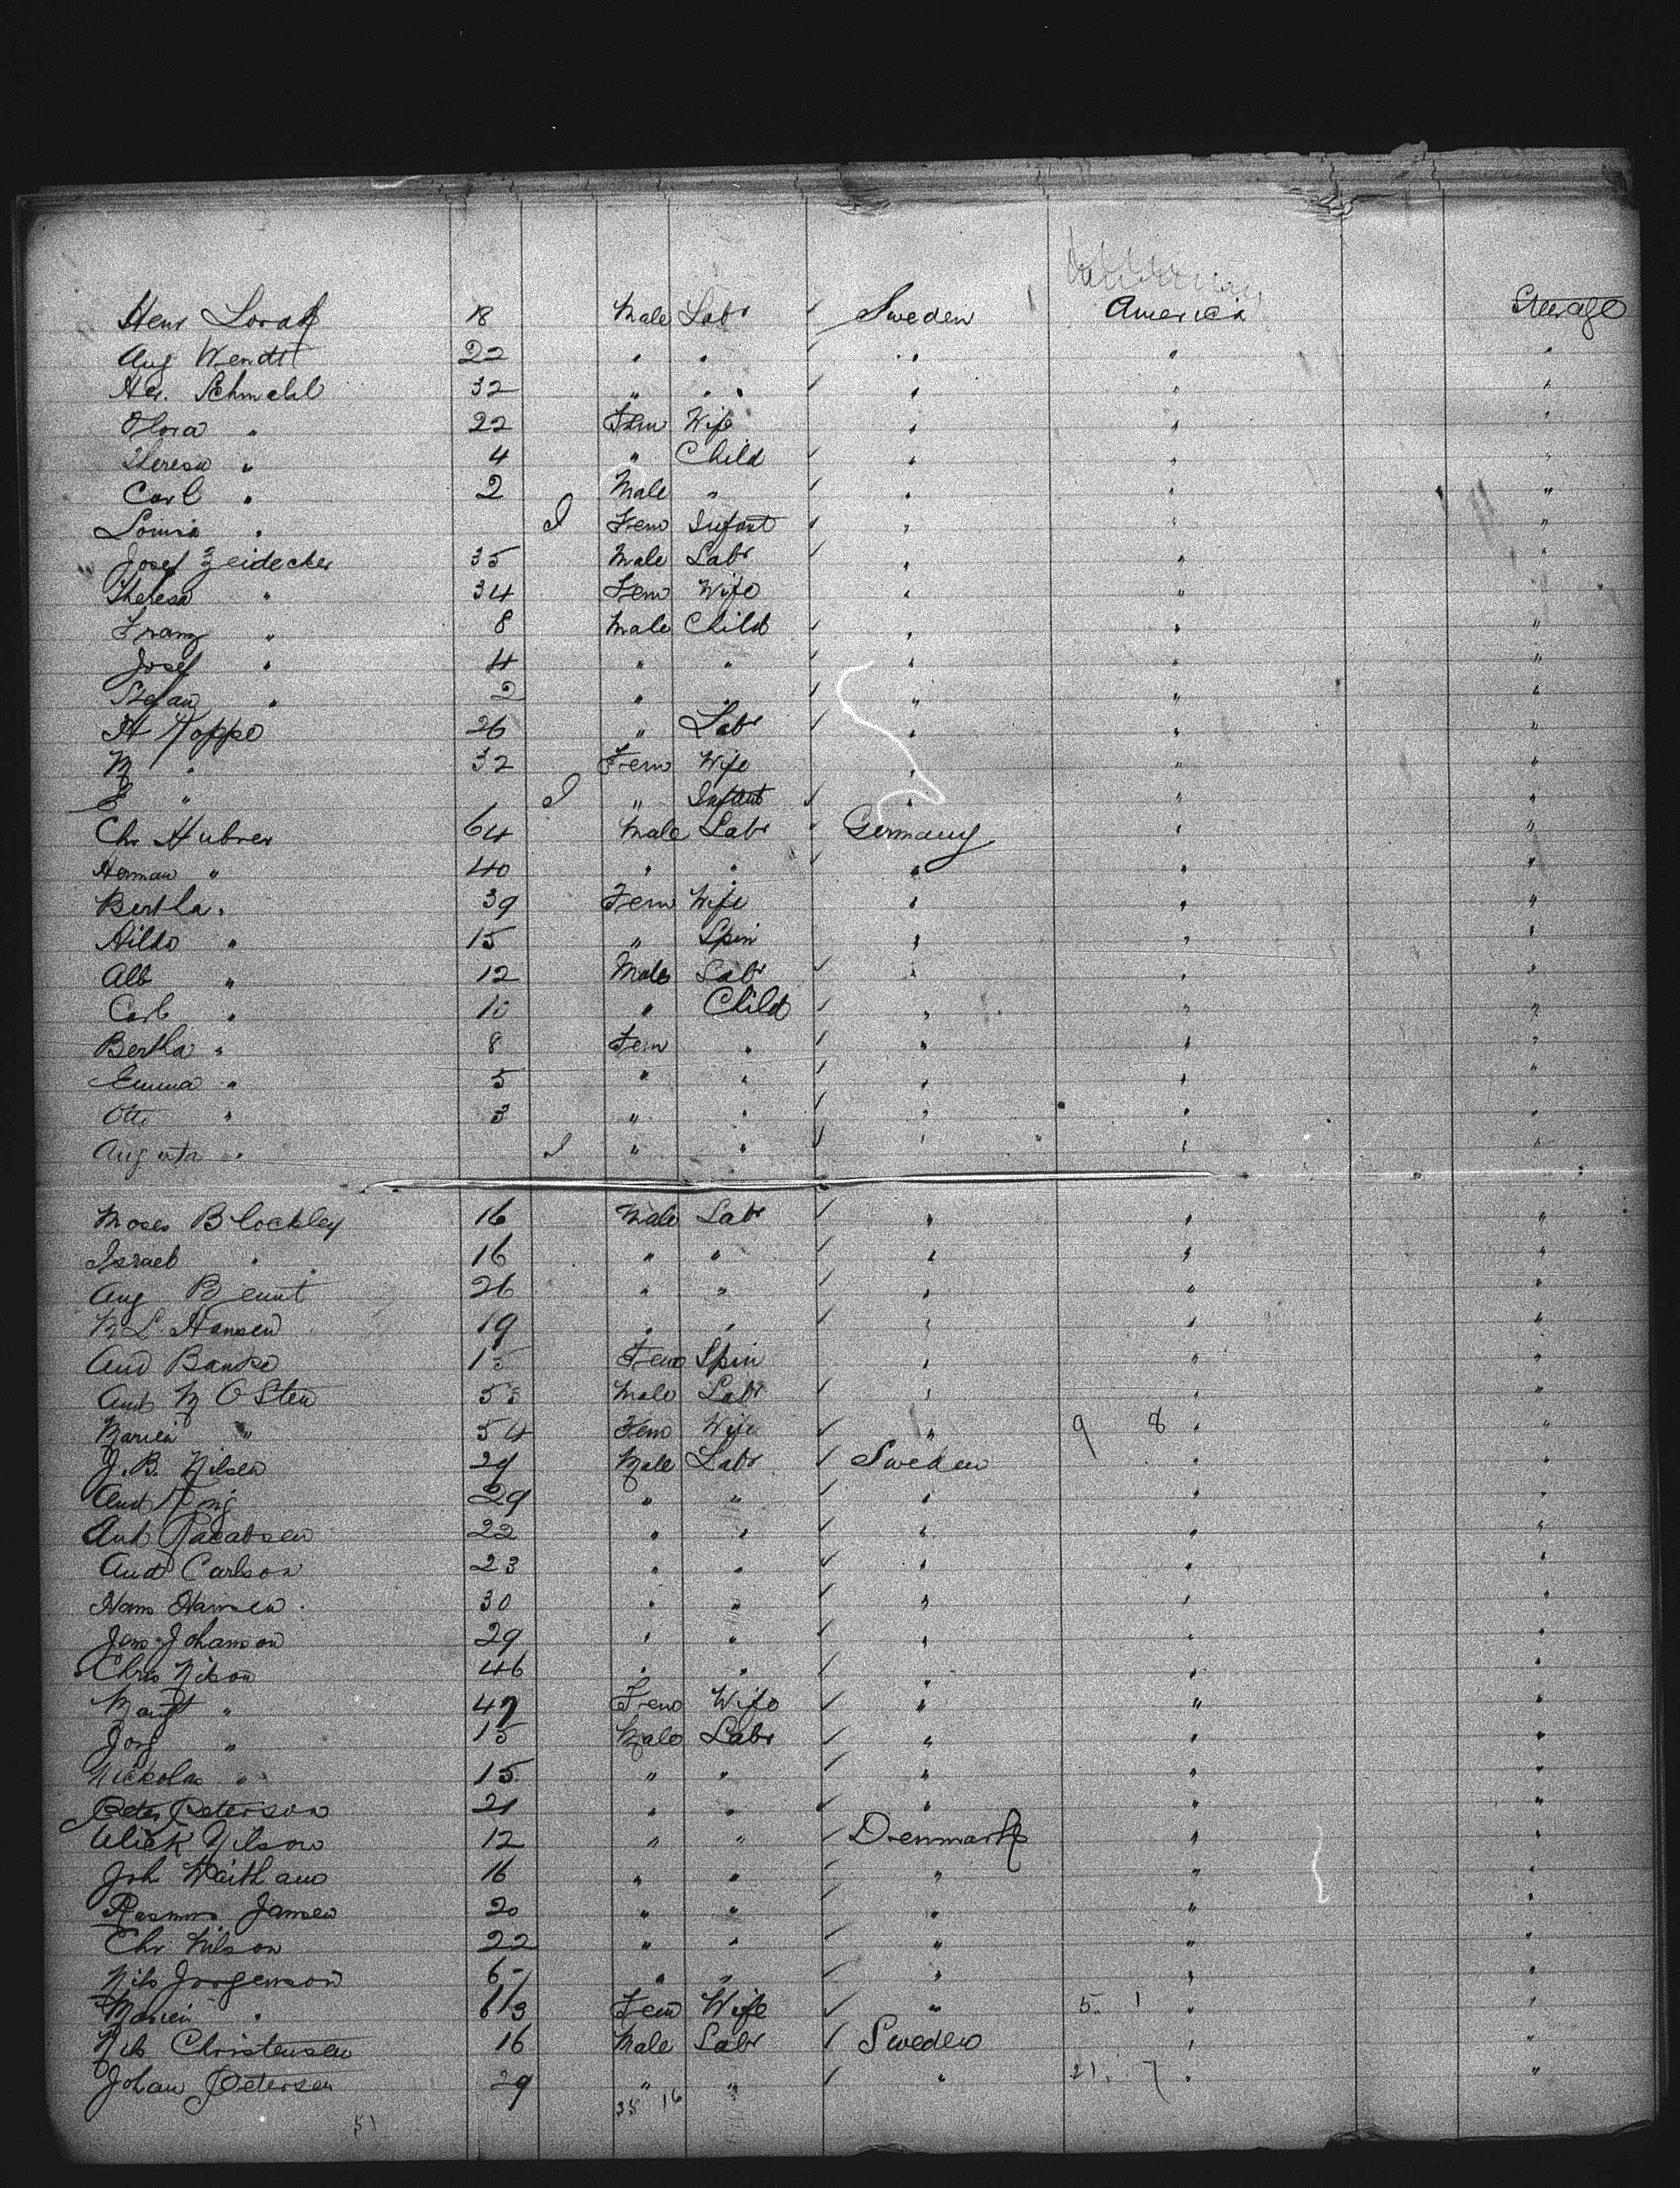 Hens 18 Male Labr ✓ Sweden America Steerage
Aug Wendt 22 " " ✓ " " "
Her. Schmehl 32 " " ✓ " " "
Flora " 22 Fem Wife " " "
Theresa " 4 " Child ✓ " " "
Carl " 2 Male " ✓ " " "
Louisa " I Fem Infant ✓ " " "
Josef Zeidecker 35 Male Labr ✓ " " "
Theresa " 34 Fem Wife " " "
Franz " 8 Male Child ✓ " " "
Josef " 4 " " ✓ " " "
Stefan " 2 " " ✓ " " "
H Koppe 26 " Labr ✓ " " "
M " 32 Fem Wife " " "
E " I " Infant ✓ " " "
Chr Hubner 64 Male Labr ✓ Germany " "
Herman " 40 " " ✓ " " "
Bertha " 39 Fem Wife " " "
Hilda " 15 " Spin " " "
Alb " 12 Male Labr ✓ " " "
Carl " 10 " Child ✓ " " "
Bertha " 8 Fem " ✓ " " "
Emma " 5 " " ✓ " " "
Otto " 3 " " ✓ " " "
Augusta " I " " ✓ " " "
Moses Blockley 16 Male Labr ✓ " " "
Israel " 16 " " ✓ " " "
Aug 26 " " ✓ " " "
L. Hansen 19 " " ✓ " " "
And 15 Fem Spin " " "
M Osten Male Labr ✓ " " "
" 54 Fem Wife ✓ " 9 8 " "
J. B. Nilsen 29 Male Labr ✓ Sweden " "
And 29 " " ✓ " " "
22 " " ✓ " " "
And Carlson 23 " " ✓ " " "
Hans Hansen 30 " " ✓ " " "
Jens Johanson 29 " " ✓ " " "
Chris Nilson 46 " " ✓ " " "
Margt " 47 Fem Wife ✓ " " "
" 15 Male Labr ✓ " " "
Nickolas " 15 " " ✓ " " "
Peter Peterson 21 " " ✓ " " "
Nilson 12 " " ✓ Denmark " "
Joh 16 " " ✓ " " "
Rasmus Jansen 20 " " ✓ " " "
Chr Nilson 22 " " ✓ " " "
Nils Jorgenson " " ✓ " " "
" 63 Fem Wife ✓ " 5. 1 " "
Nils Christensen 16 Male Labr ✓ Sweden " "
Johan Petersen 29 " " ✓ " 21. 7 " "
51 35 16